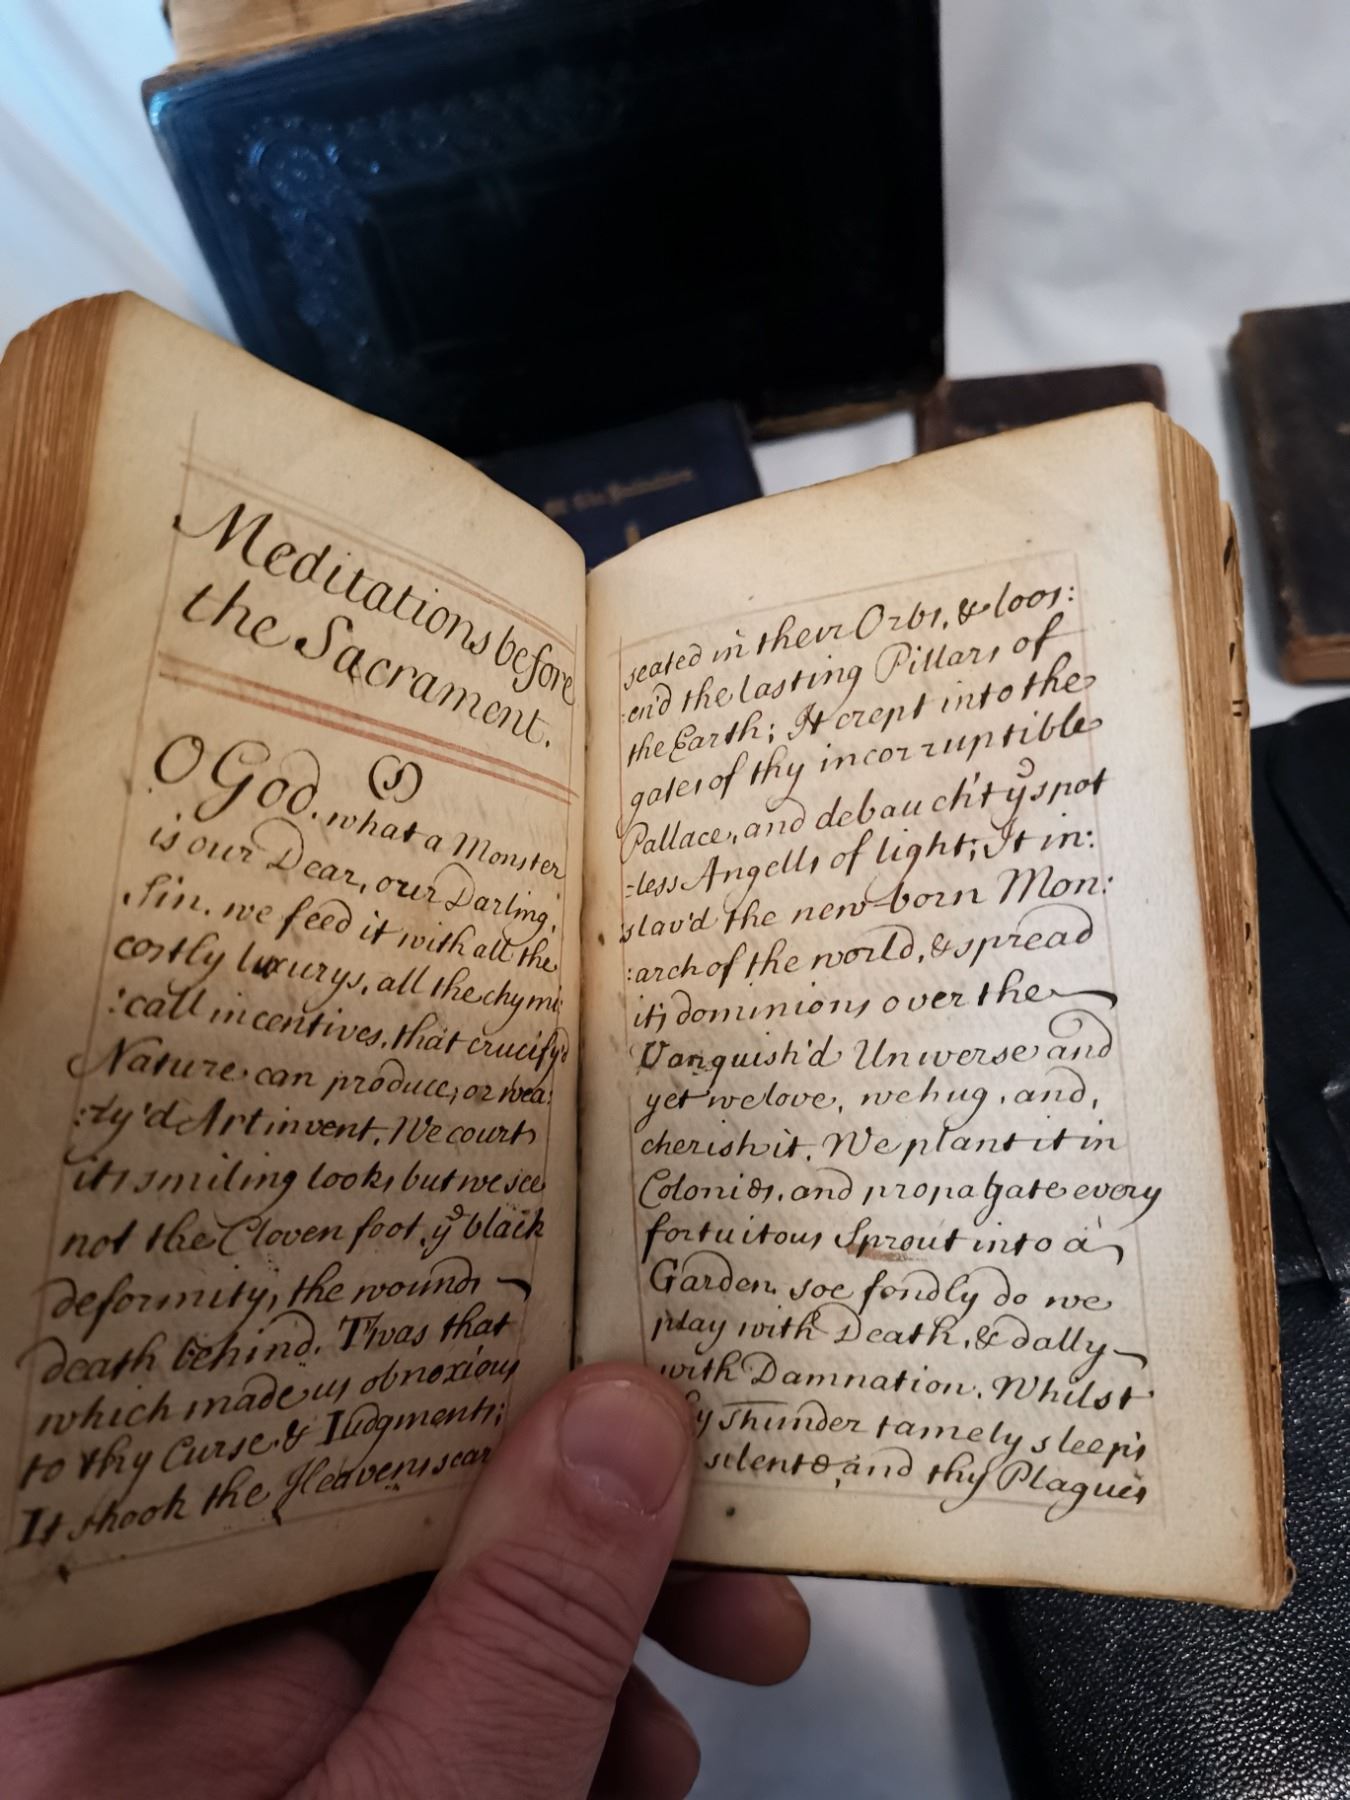 Meditations before
the Sacrament.
(1)
O God, what a Monster
is our Dear, our Darling
Sin. we feed it with all the
costly luxurys, all the chymi:
:call incentives, that crucify'd
Nature can produce, or wea:
:ry'd Art invent. We court
its smiling looks but we see
not the Cloven foot, ye black
deformity, the wound
death behind. Twas that
which made us obnoxious
to thy Curse & Iudgments;
It shook the Heavens scar
seated in their Orbs, & loos:
:end the lasting Pillars of
the Earth; It crept into the
gates of thy incorruptible
Pallace, and debauch't ye spot
-less Angells of light; It in:
:slav'd the new-born Mon:
:arch of the world, & spread
its dominions over the
Vanquish'd Universe and
yet we love, we hug, and,
cherish it. We plant it in
Colonies, and propagate every
fortuitous Sprout into a
Garden. soe fondly do we
play with Death, & dally
with Damnation. Whilst
Thunder tamely sleeps
silent & and thy Plagues